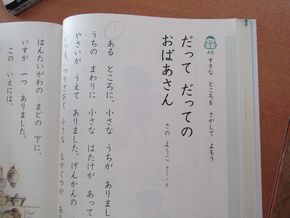 よむ
すきな ところを さがして よもう
だって だっての
おばあさん
さの ようこ さく・え
1
ある ところに、小さな うちが ありまし
うちの まわりに 小さな はたけが あって
やさいが うえて ありました。げんかんの
小さな ながぐつが
はんたいがわの まどの 下に、
いすが 一つ ありました。
この いえには、